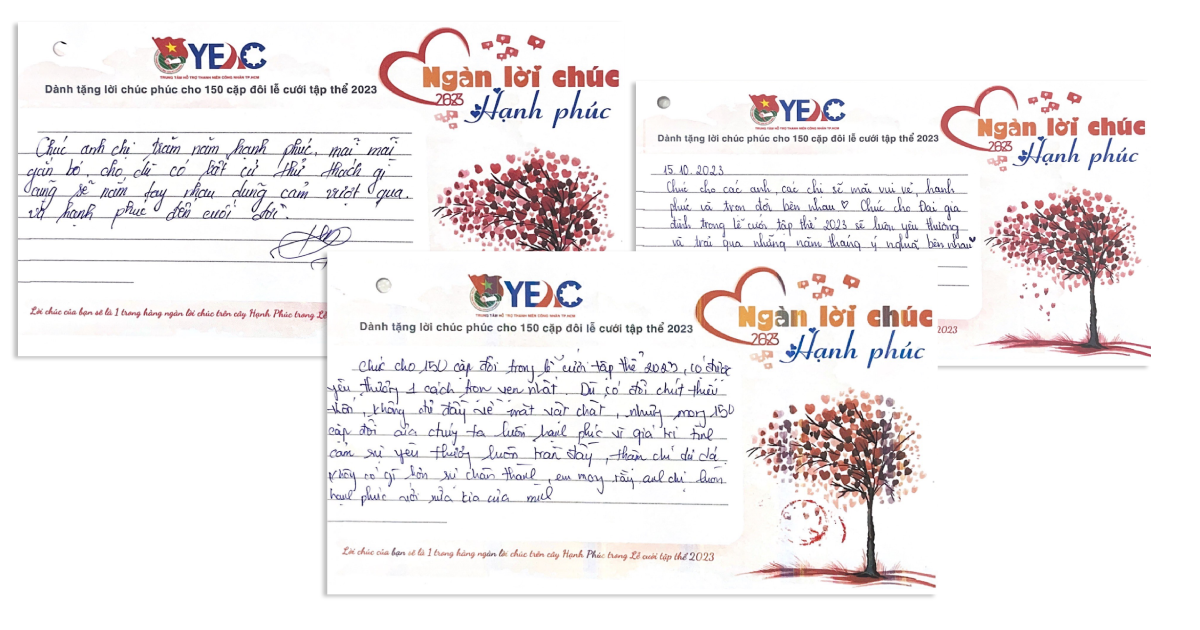 YEAC
TRUNG TÂM HỖ TRỢ THANH NIÊN CÔNG NHÂN TP.HCM
Dành tặng lời chúc phúc cho 150 cặp đôi lễ cưới tập thể 2023
Ngàn lời chúc
2023 Hạnh phúc
Chúc anh chị trăm năm hạnh phúc, mãi mãi
gắn bó, cho dù có bất cứ thử thách gì
cũng sẽ nắm tay nhau dũng cảm vượt qua.
và hạnh phúc đến cuối đời.
Lời chúc của bạn sẽ là 1 trong hàng ngàn lời chúc trên cây Hạnh Phúc trong Lễ
YEAC
TRUNG TÂM HỖ TRỢ THANH NIÊN CÔNG NHÂN TP.HCM
Dành tặng lời chúc phúc cho 150 cặp đôi lễ cưới tập thể 2023
Ngàn lời chúc
2023 Hạnh phúc
15.10.2023
Chúc cho các anh, các chị sẽ mãi vui vẻ, hạnh
phúc và trọn đời bên nhau ♡ Chúc cho Đại gia
đình trong lễ cưới tập thể 2023 sẽ luôn yêu thương
và trải qua những năm tháng ý nghĩa bên nhau
2023
YEAC
TRUNG TÂM HỖ TRỢ THANH NIÊN CÔNG NHÂN TP.HCM
Dành tặng lời chúc phúc cho 150 cặp đôi lễ cưới tập thể 2023
Ngàn lời chúc
2023 Hạnh phúc
Chúc cho 150 cặp đôi trong lễ cưới tập thể 2023, có được
yêu thương 1 cách trọn vẹn nhất. Dù có đôi chút thiếu
thốn, không đủ đầy về mặt vật chất, nhưng mong 150
cặp đôi của chúng ta luôn hạnh phúc vì giá trị tình
cảm sự yêu thương luôn tràn đầy, thậm chí dù đã
không có gì hơn sự chân thành, em mong rằng anh chị luôn
hạnh phúc với nửa kia của mình
Lời chúc của bạn sẽ là 1 trong hàng ngàn lời chúc trên cây Hạnh Phúc trong Lễ cưới tập thể 2023